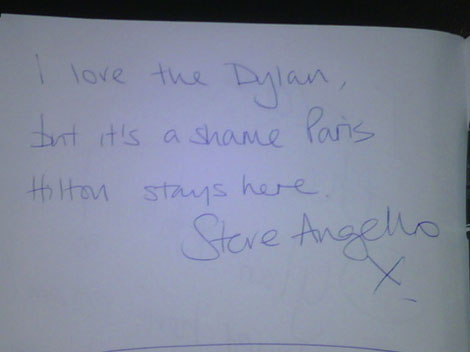 i love the Dylan,
but it's a shame Paris
Hilton stays here.
Steve Angello
X